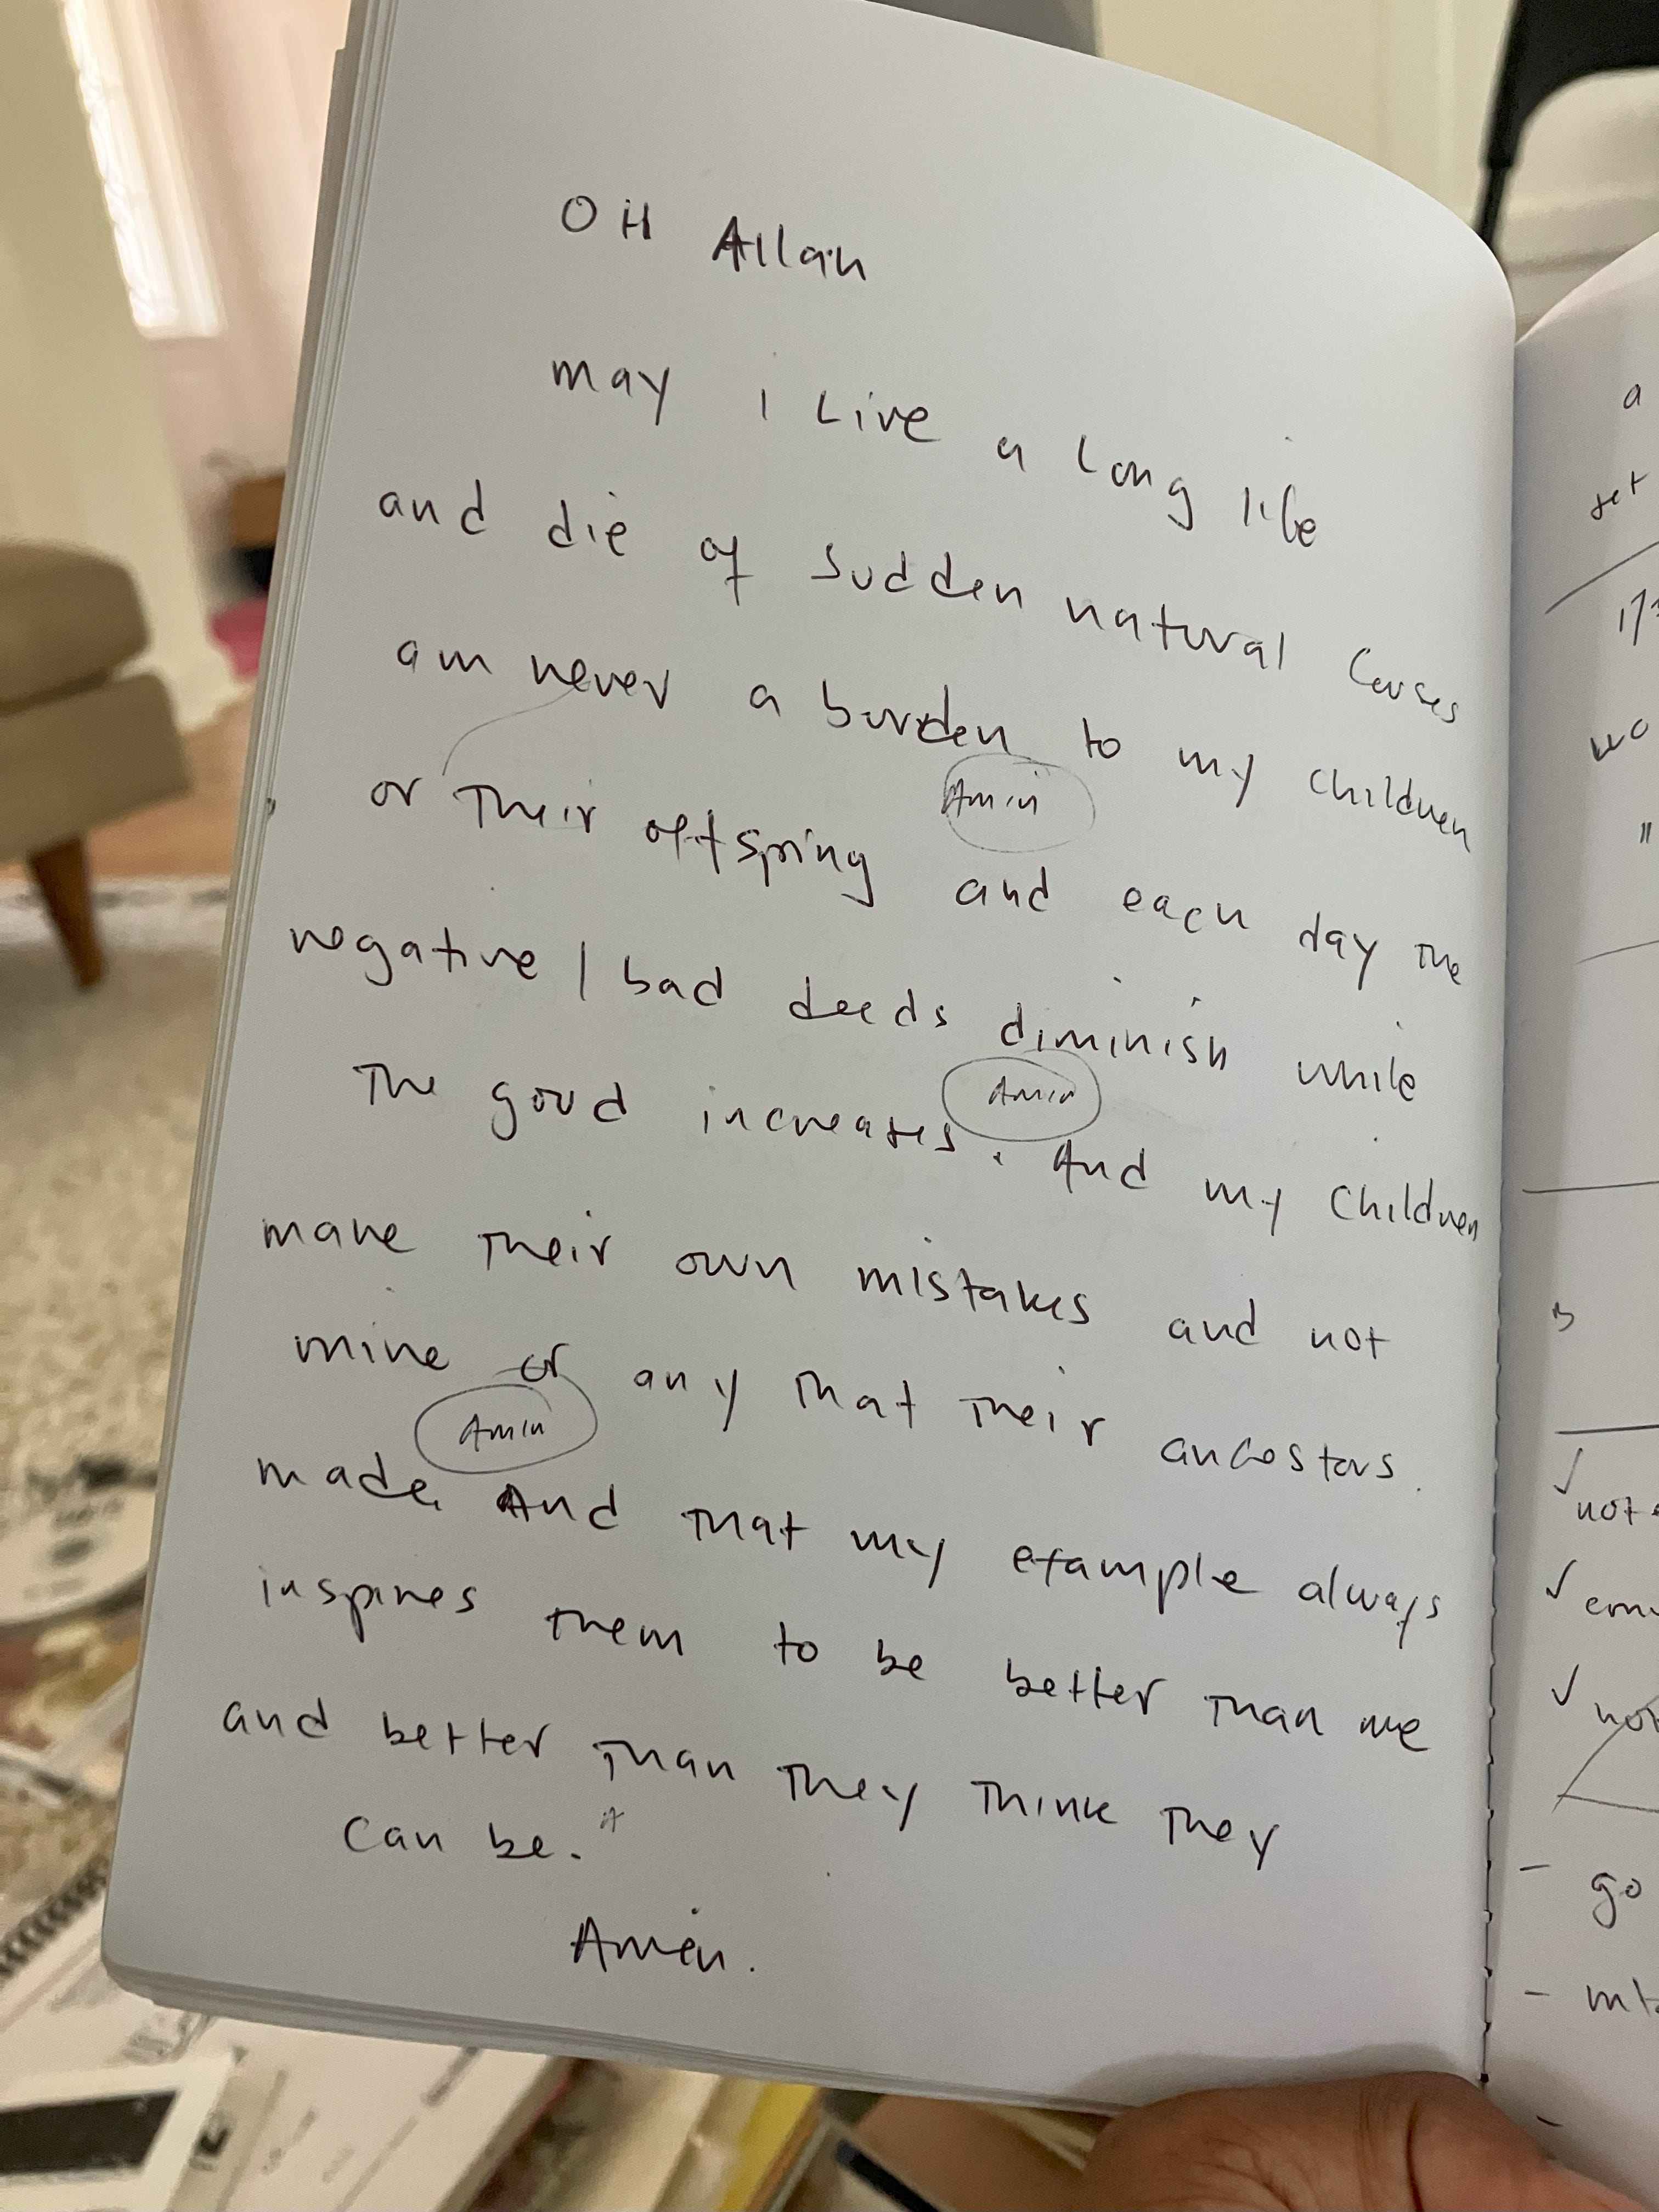 OH Allah
may i Live a long life
and die of sudden natural causes
am never a burden to my children
Amin
or Their offspring and each day the
negative / bad deeds diminish while
Amin
The good increases. And my children
make Their own mistakes and not
mine or any that Their ancestors.
Amin
made. And that my example always
inspires them to be better Than me
and better Than They Think They
can be. A
Amen.
a
set
wo
"
✓
not
✓
✓ not
- go
-
-